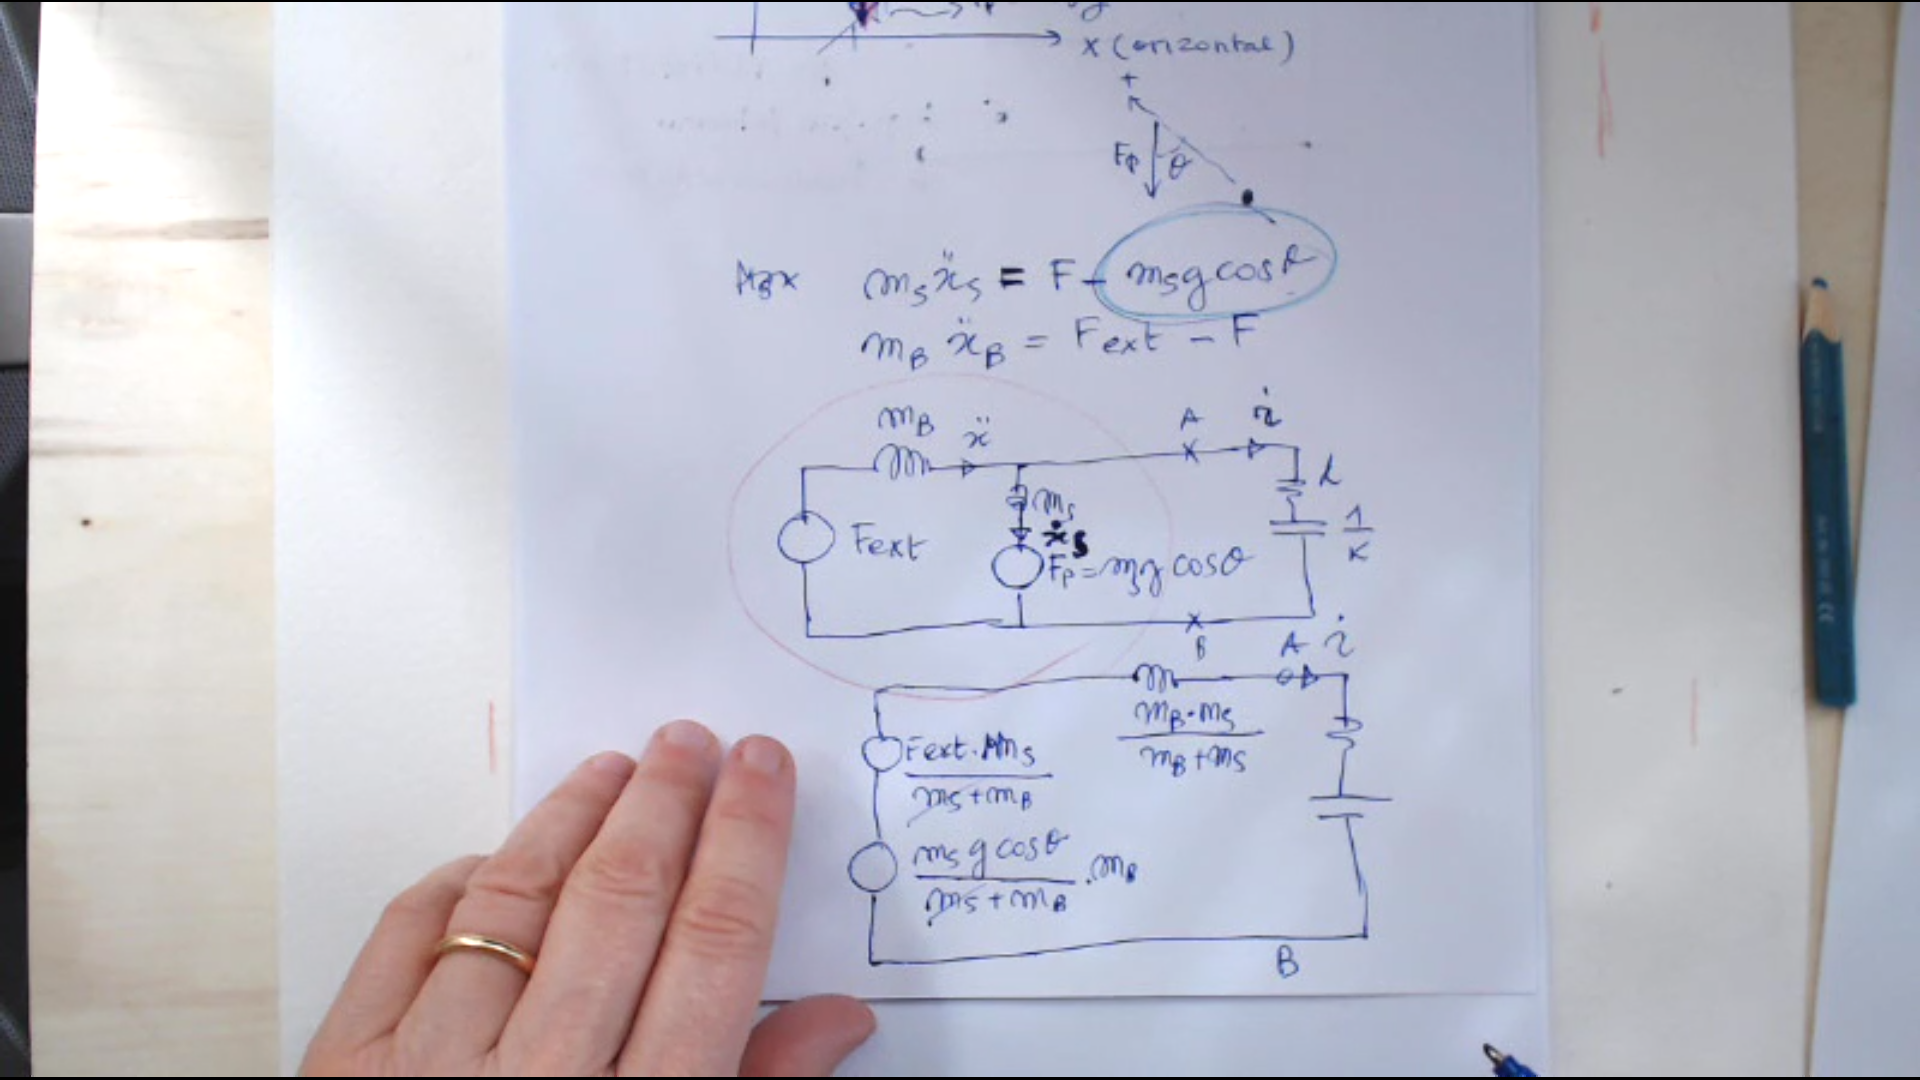 x (orizontal)
+
Fp θ
m_S ẍ_S = F - m_S g cos θ
m_B ẍ_B = F ext - F
m_B ẍ A ż
m_S λ
ẋ_S 1/K
Fext F_P = m_S g cos θ
B A ż
m_B · m_S / m_B + m_S
Fext · m_S / m_S + m_B
m_S g cos θ / m_S + m_B · m_B
B